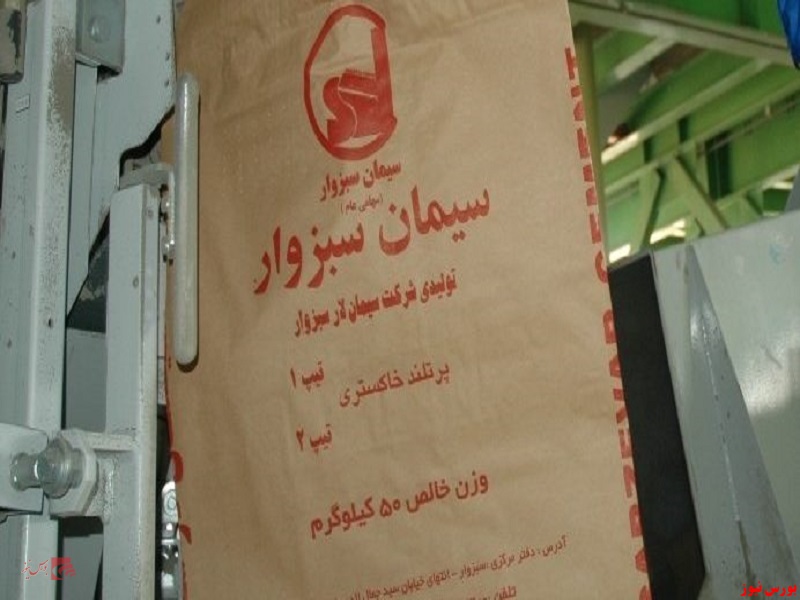 سیمان سبزوار
(سهامی عام)
سیمان سبزوار
تولیدی شرکت سیمان لار سبزوار
تیپ ۱
پرتلند خاکستری
تیپ ۲
وزن خالص ۵۰ کیلوگرم
آدرس : دفتر مرکزی :سبزوار - انتهای خیابان سید جمال
تلفن
CEMENT
بورس نیوز